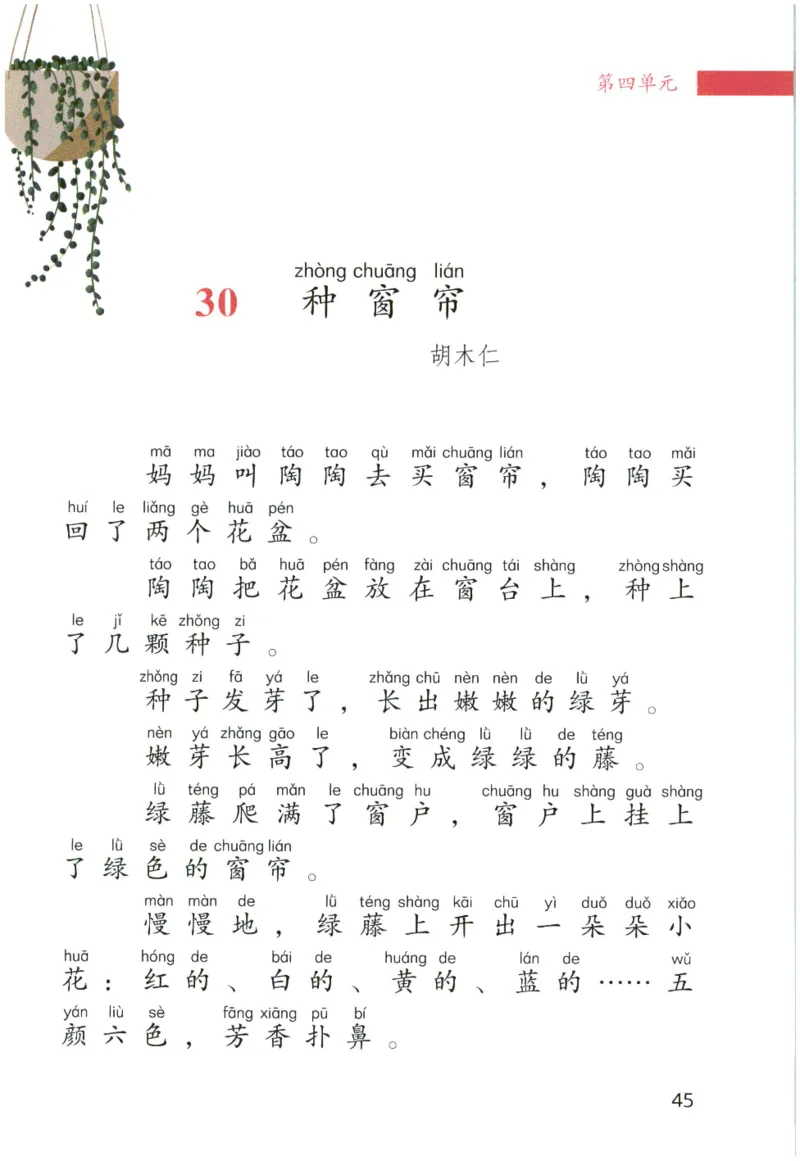 第四单元
zhòng chuāng lián
30 种窗帘
胡木仁
mā ma jiào táo tao qù mǎi chuāng lián táo tao mǎi
妈妈叫陶陶去买窗帘，陶陶买
huí le liǎng gè huā pén
回了两个花盆。
táo tao bǎ huā pén fàng zài chuāng tái shàng zhòng shàng
陶陶把花盆放在窗台上，种上
le jǐ kē zhǒng zi
了几颗种子。
zhǒng zi fā yá le zhǎng chū nèn nèn de lǜ yá
种子发芽了，长出嫩嫩的绿芽。
nèn yá zhǎng gāo le biàn chéng lǜ lǜ de téng
嫩芽长高了，变成绿绿的藤。
lǜ téng pá mǎn le chuāng hu chuāng hu shàng guà shàng
绿藤爬满了窗户，窗户上挂上
le lǜ sè de chuāng lián
了绿色的窗帘。
màn màn de lǜ téng shàng kāi chū yì duǒ duǒ xiǎo
慢慢地，绿藤上开出一朵朵小
huā hóng de bái de huáng de lán de wǔ
花：红的、白的、黄的、蓝的……五
yán liù sè fāng xiāng pū bí
颜六色，芳香扑鼻。
45